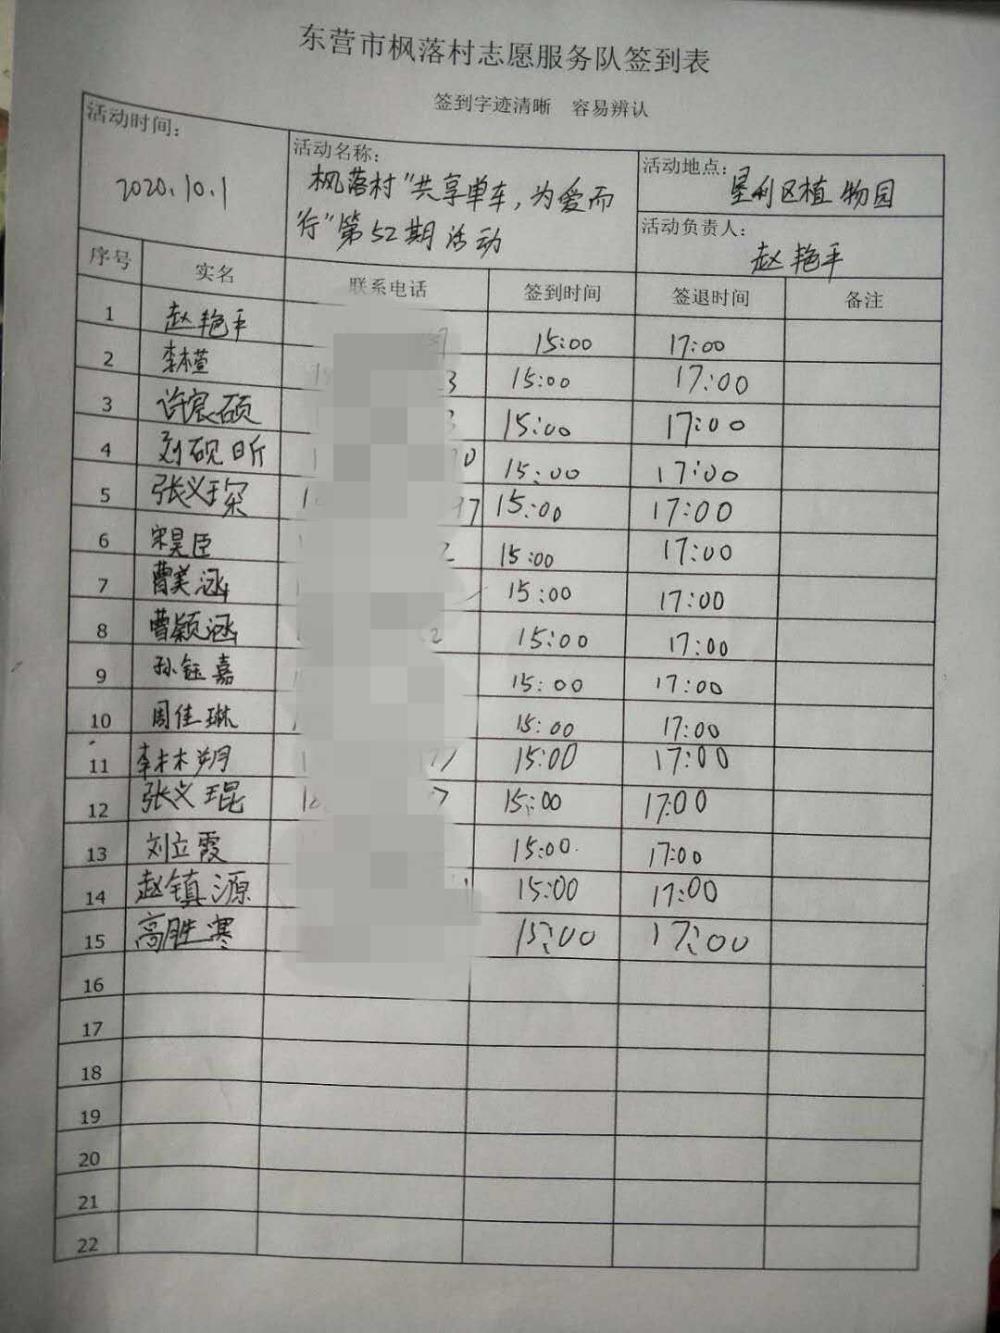 东营市枫落村志愿服务队签到表
签到字迹清晰 容易辨认
活动时间：
2020.10.1
活动名称：
枫落村"共享单车，为爱而
行"第52期活动
活动地点：
垦利区植物园
活动负责人：
赵艳平
序号 实名 联系电话 签到时间 签退时间 备注
1 赵艳平 15:00 17:00
2 李木萱 15:00 17:00
3 许宸硕 15:00 17:00
4 刘砚昕 15:00 17:00
5 张义琛 15:00 17:00
6 宋昊臣 15:00 17:00
7 曹美涵 15:00 17:00
8 曹颖涵 15:00 17:00
9 孙钰嘉 15:00 17:00
10 周佳琳 15:00 17:00
11 李木朔 15:00 17:00
12 张义琨 15:00 17:00
13 刘立霞 15:00 17:00
14 赵镇源 15:00 17:00
15 高胜寒 15:00 17:00
16
17
18
19
20
21
22